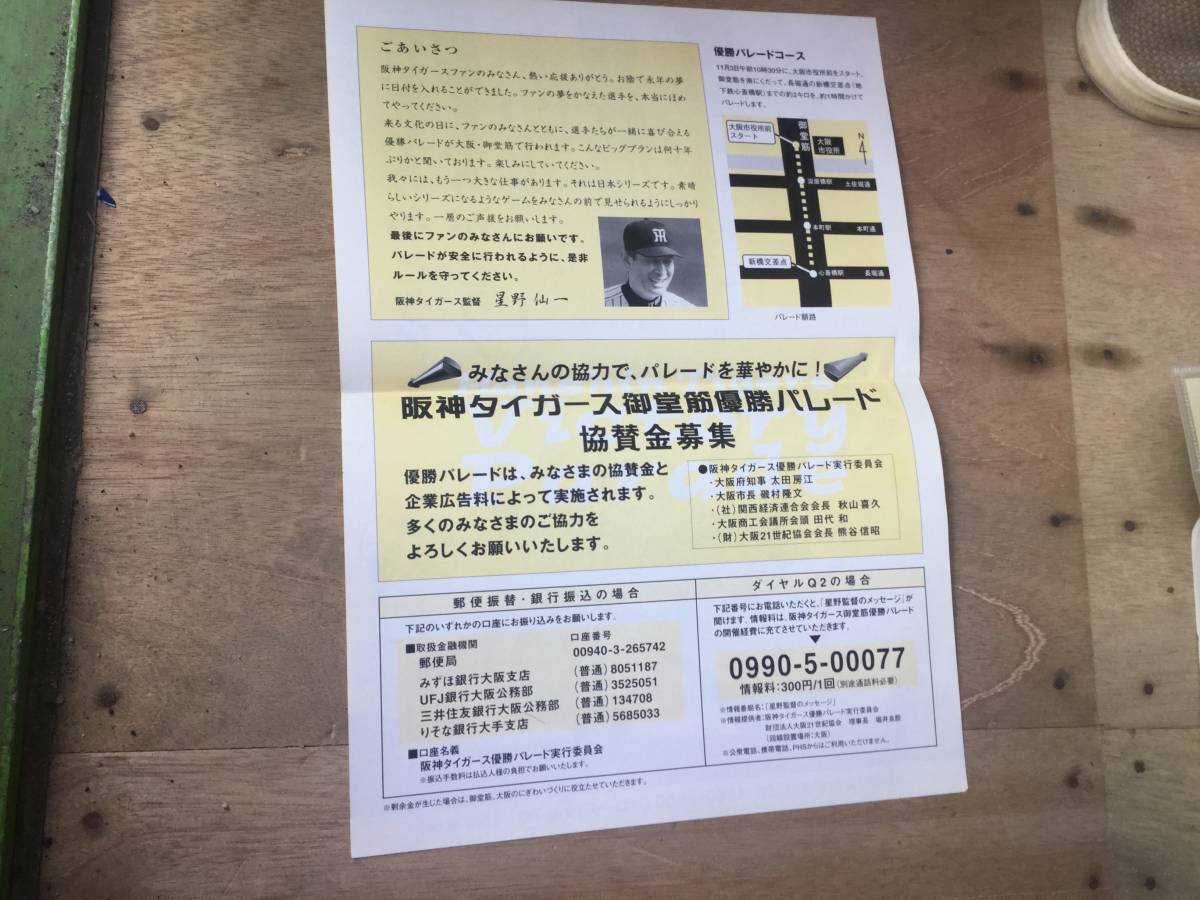 ごあいさつ
阪神タイガースファンのみなさん、熱い応援ありがとう。お陰で永年の夢
に日付を入れることができました。ファンの夢をかなえた選手を、本当にほめ
てやってください。
来る文化の日に、ファンのみなさんとともに、選手たちが一緒に喜び合える
優勝パレードが大阪・御堂筋で行われます。こんなビッグプランは何十年
ぶりかと聞いております。楽しみにしていてください。
我々には、もう一つ大きな仕事があります。それは日本シリーズです。素晴
らしいシリーズになるようなゲームをみなさんの前で見せられるようにしっかり
やります。一層のご声援をお願いします。
最後にファンのみなさんにお願いです。
パレードが安全に行われるように、是非
ルールを守ってください。
阪神タイガース監督 星野仙一
優勝パレードコース
11月3日午前10時30分に、大阪市役所前をスタート。
御堂筋を南にくだって、長堀通の新橋交差点(地
下鉄心斎橋駅)までの約2キロを、約1時間かけて
パレードします。
大阪市役所前
スタート
御堂筋
大阪
市役所
N
淀屋橋駅
土佐堀通
本町駅
本町通
新橋交差点
心斎橋駅
長堀通
パレード順路
みなさんの協力で、パレードを華やかに!
Hanshin Tigers
Victory
Parade
阪神タイガース御堂筋優勝パレード
協賛金募集
優勝パレードは、みなさまの協賛金と
企業広告料によって実施されます。
多くのみなさまのご協力を
よろしくお願いいたします。
●阪神タイガース優勝パレード実行委員会
・大阪府知事 太田房江
・大阪市長 磯村隆文
・(社)関西経済連合会会長 秋山喜久
・大阪商工会議所会頭 田代 和
・(財)大阪21世紀協会会長 熊谷信昭
郵便振替・銀行振込の場合
下記のいずれかの口座にお振り込みをお願いします。
■取扱金融機関 口座番号
郵便局 00940-3-265742
みずほ銀行大阪支店 (普通)8051187
UFJ銀行大阪公務部 (普通)3525051
三井住友銀行大阪公務部 (普通)134708
りそな銀行大手支店 (普通)5685033
■口座名義
阪神タイガース優勝パレード実行委員会
※振込手数料は払込人様の負担でお願いいたします。
ダイヤルQ2の場合
下記番号にお電話いただくと、「星野監督のメッセージ」が
聞けます。情報料は、阪神タイガース御堂筋優勝パレード
の開催経費に充てさせていただきます。
0990-5-00077
情報料:300円/1回(別途通話料必要)
※情報番組名:「星野監督のメッセージ」
※情報提供者:阪神タイガース優勝パレード実行委員会
財団法人大阪21世紀協会 理事長 堀井良殷
(回線設置場所:大阪)
※公衆電話、携帯電話、PHSからはご利用いただけません。
※剰余金が生じた場合は、御堂筋、大阪のにぎわいづくりに役立たせていただきます。